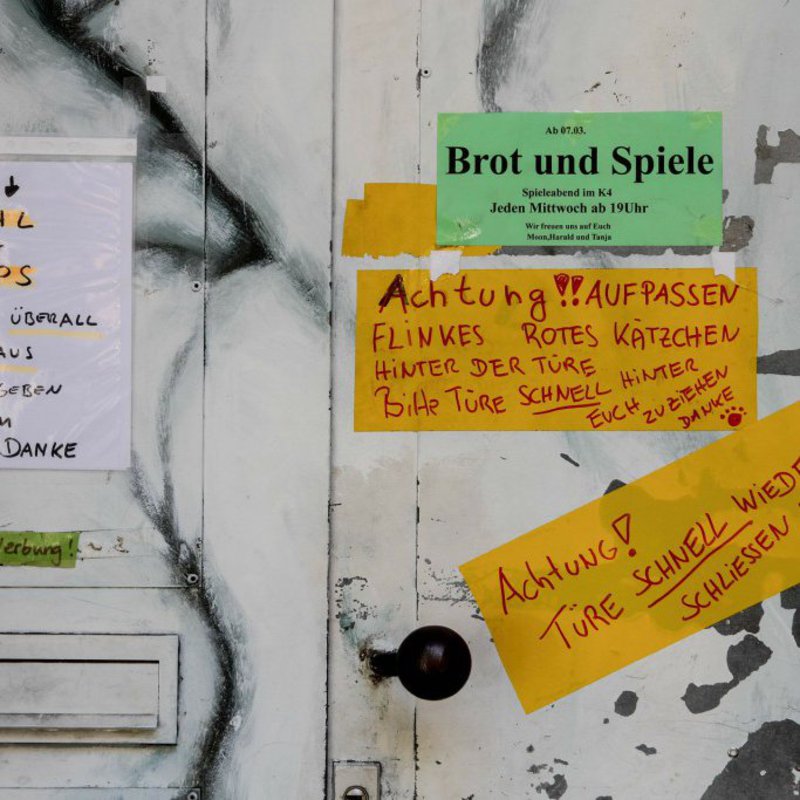 L
PS
ÜBERALL
AUS
GEBEN
DANKE
Werbung!
Ab 07.03.
Brot und Spiele
Spieleabend im K4
Jeden Mittwoch ab 19Uhr
Wir freuen uns auf Euch
Moon,Harald und Tanja
Achtung!! AUFPASSEN
FLINKES ROTES KÄTZCHEN
HINTER DER TÜRE
Bitte TÜRE SCHNELL HINTER
EUCH ZU ZIEHEN
DANKE
Achtung!
TÜRE SCHNELL WIEDE
SCHLIESSEN